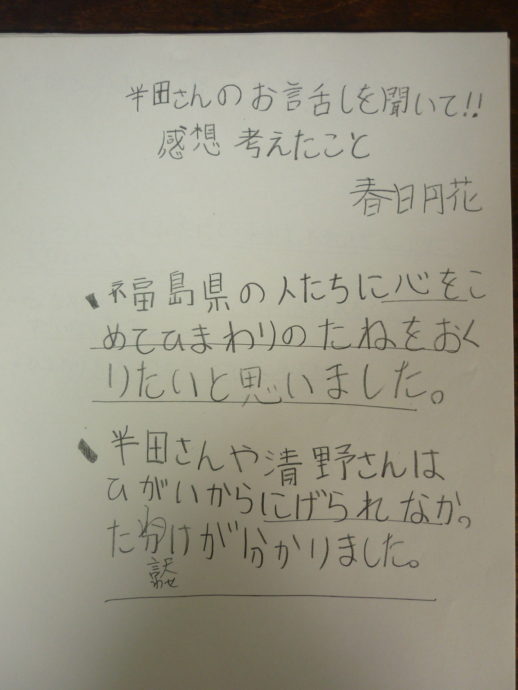 半田さんのお話しを聞いて!!
感想 考えたこと
春日円花
福島県の人たちに心をこ
めてひまわりのたねをおく
りたいと思いました。
半田さんや清野さんは
ひがいからにげられなかっ
たわけが分かりました。
訳